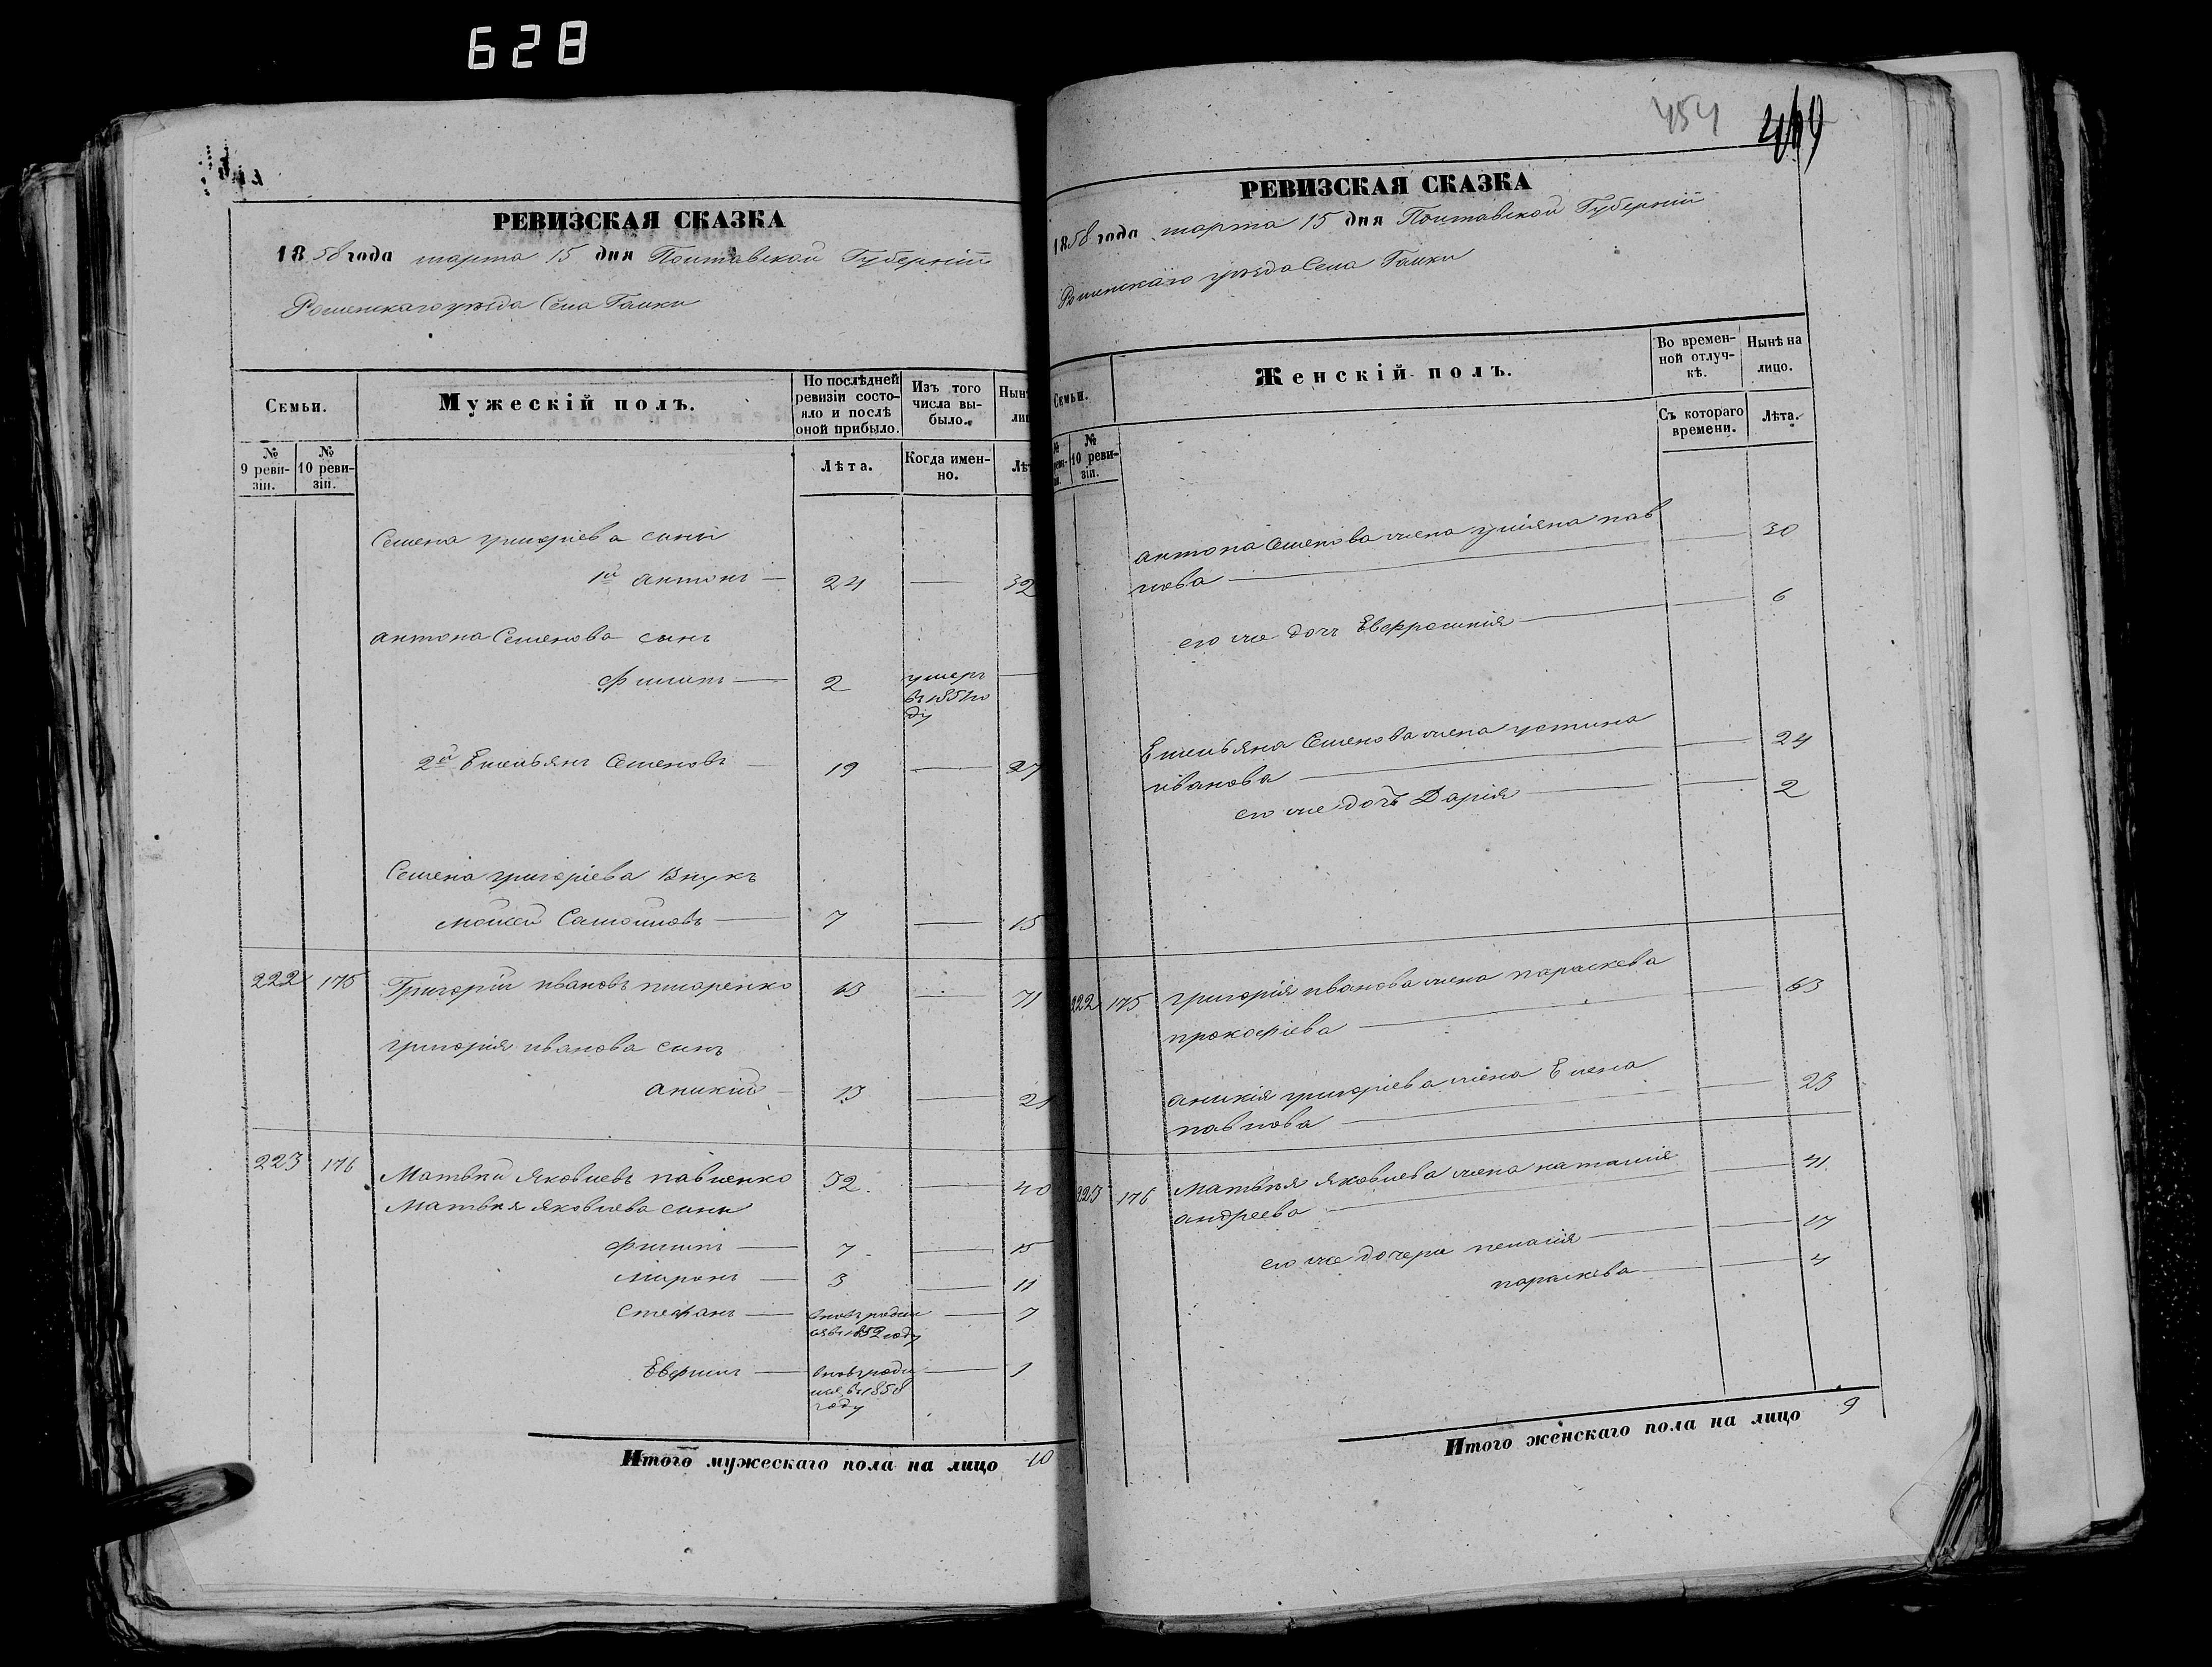 628
РЕВИЗСКАЯ СКАЗКА
1858 года марта 15 дня Полтавской Губерніи
Роменскаго уезда Села Галки
Семьи.
Мужескій полъ.
По послѣдней ревизіи состо-
яло и послѣ
оной прибыло.
Изъ того
числа вы-
было.
№
9 реви-
зіи.
№
10 реви-
зіи.
Лѣта.
Когда имен-
но.
Семена григоріева сыны
1й антонъ — 24 — 32
антона Семенова сынъ
филипъ — 2 умеръ —
въ 1851 го
ду
2й Емельянъ Семеновъ — 19 — 27
Семена григоріева Внукъ
моисей Самойловъ — 7 — 15
222 175 Григорій ивановъ писаренко 63 — 71
григорія иванова сынъ
аникій — 13 — 21
223 176 Матвѣй Яковлевъ павленко 32 — 40
Матвѣя яковлева сыны
филипъ — 7 — 15
миронъ — 3 — 11
стефанъ — вновь родил — 7
ся въ 1852 году
Евфимъ — вновь роди — 1
лся въ 1858
году
Итого мужескаго пола на лицо 10
454 469
РЕВИЗСКАЯ СКАЗКА
1858 года марта 15 дня Полтавской Губерніи
Роменскаго уезда Села Галки
Семьи.
Женскій полъ.
Во времен-
ной отлуч-
кѣ.
Нынѣ на
лицо.
№
10 реви-
зіи.
Съ котораго
времени.
Лѣта.
антона Семенова жена улияна пав — 30
лова —
его же дочъ Евфросинія — 6
Емельяна Семенова жена устина — 24
иванова —
его же дочь Дарія — 2
222 175 григорія иванова жена параскева — 63
прокофіева —
аникія григоріева жена Елена — 23
павлова —
223 176 матвѣя яковлева жена наталия — 41
андреева —
его же дочери пелагия — 17
параскева — 4
Итого женскаго пола на лицо 9